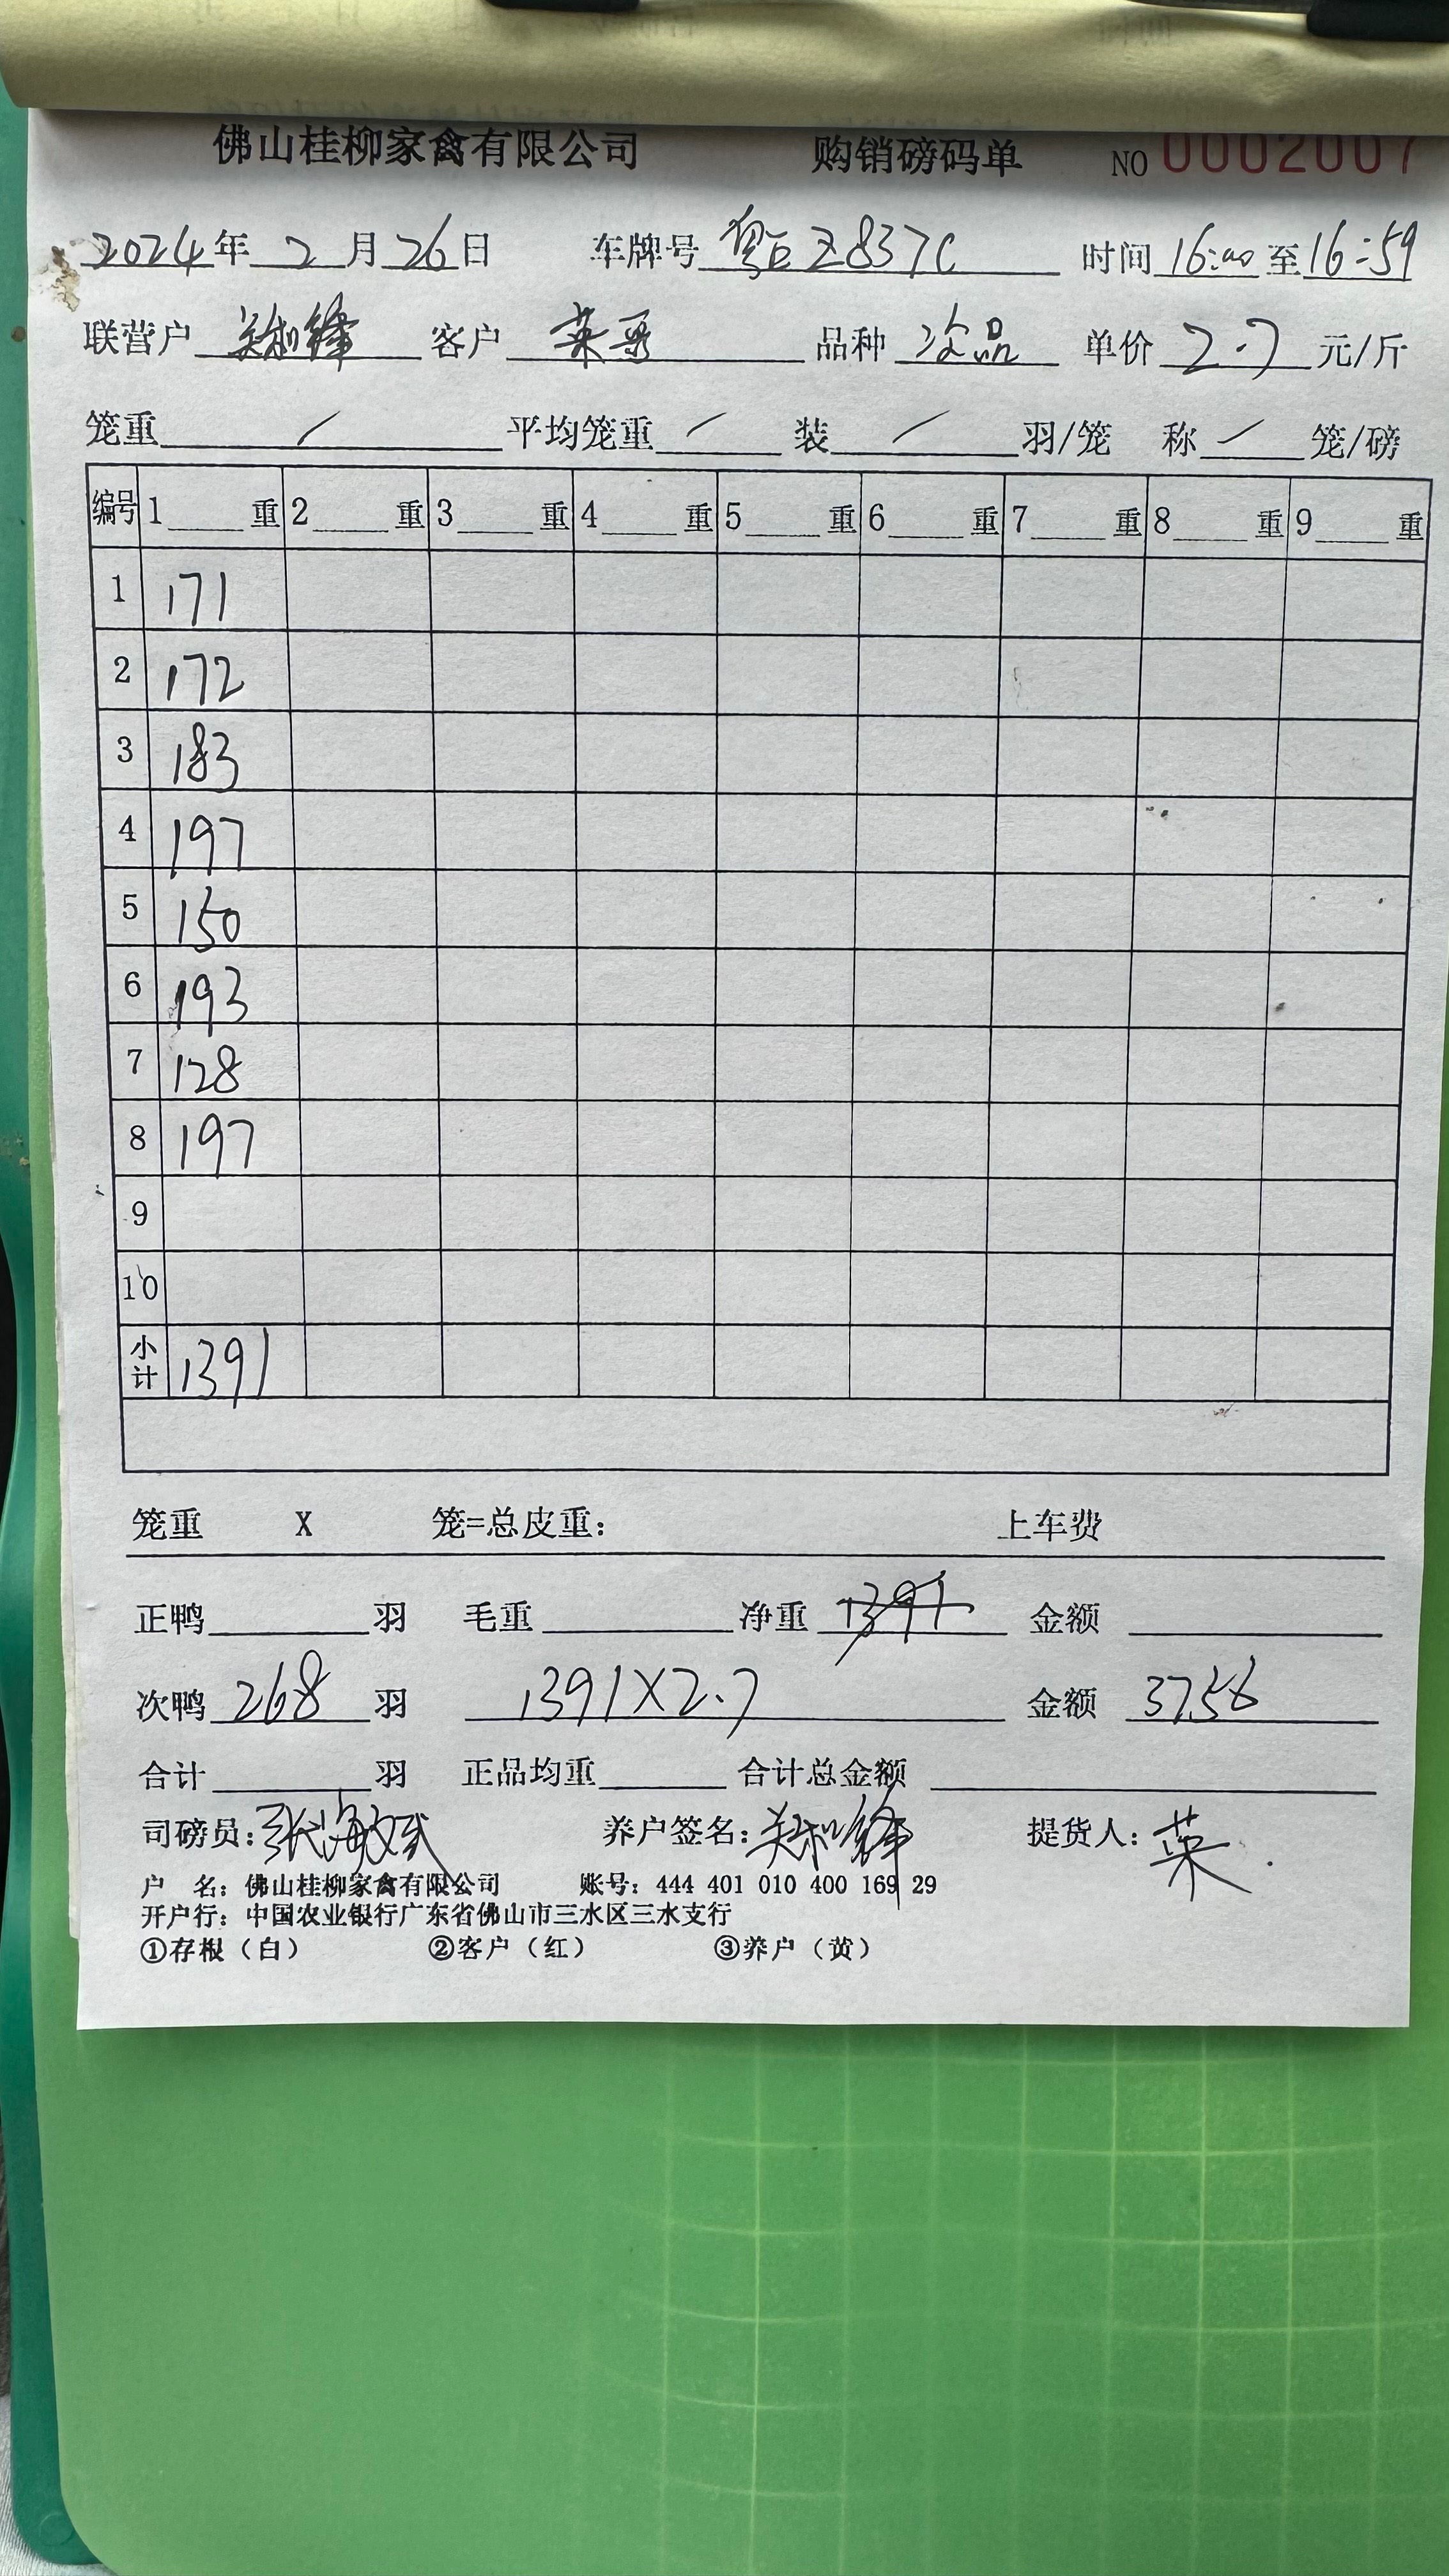 佛山桂柳家禽有限公司 购销磅码单 NO 0002007
2024年2月26日 车牌号 Z837C 时间16:00至16:59
联营户 客户 菜哥 品种 次品 单价 2.7 元/斤
笼重 / 平均笼重 / 装 / 羽/笼 称 / 笼/磅
编号 1 重 2 重 3 重 4 重 5 重 6 重 7 重 8 重 9 重
1 171
2 172
3 183
4 197
5 150
6 193
7 128
8 197
9
10
小计 1391
笼重 X 笼=总皮重: 上车费
正鸭 羽 毛重 净重 1391 金额
次鸭 268 羽 1391X2.7 金额 3756
合计 羽 正品均重 合计总金额
司磅员: 养户签名: 提货人: 菜
户 名: 佛山桂柳家禽有限公司 账号: 444 401 010 400 169 29
开户行: 中国农业银行广东省佛山市三水区三水支行
①存根（白） ②客户（红） ③养户（黄）